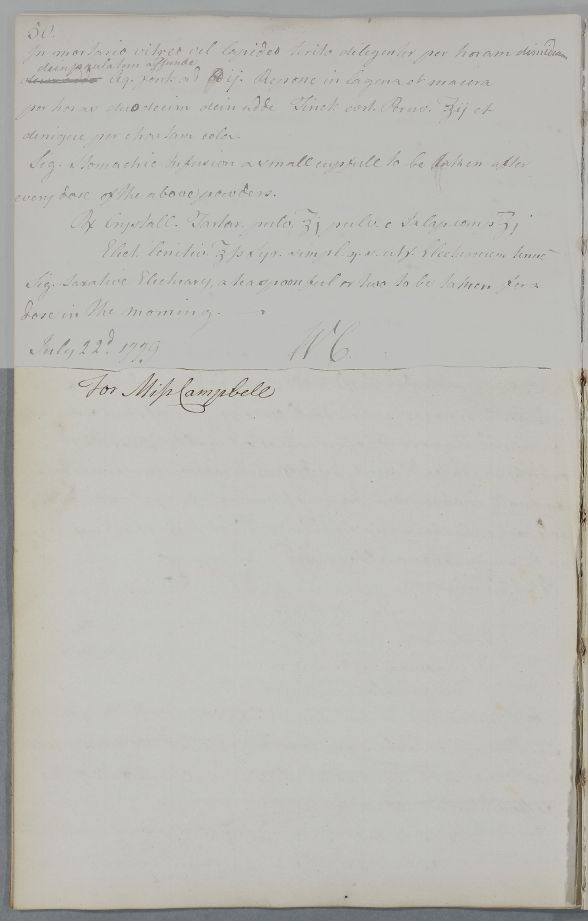 50.
In mortario vitreo vel lapideo terito diligenter per horam dimidiam
dein paulatim affunde
Aq. font. ad ℔ij. Repone in lagena et macera
per horas duodecim dein adde Tinct. cort. Peruv. ℥ij et
denique per chartam cola.
Sig. Stomachic Infusion a small cupfull to be taken after
every dose of the above powders.
℞ Crystall. Tartar. pulv. ℥j pulv. e Jalap. comp. ℥j
Elect. lenitiv. ℥ Syr. simpl. q. s. utf. Electuarium tenue
Sig. Laxative Electuary, a tea spoonful or two to be taken for a
dose in the morning.
July 22d. 1779 W C.
For Miss Campbell